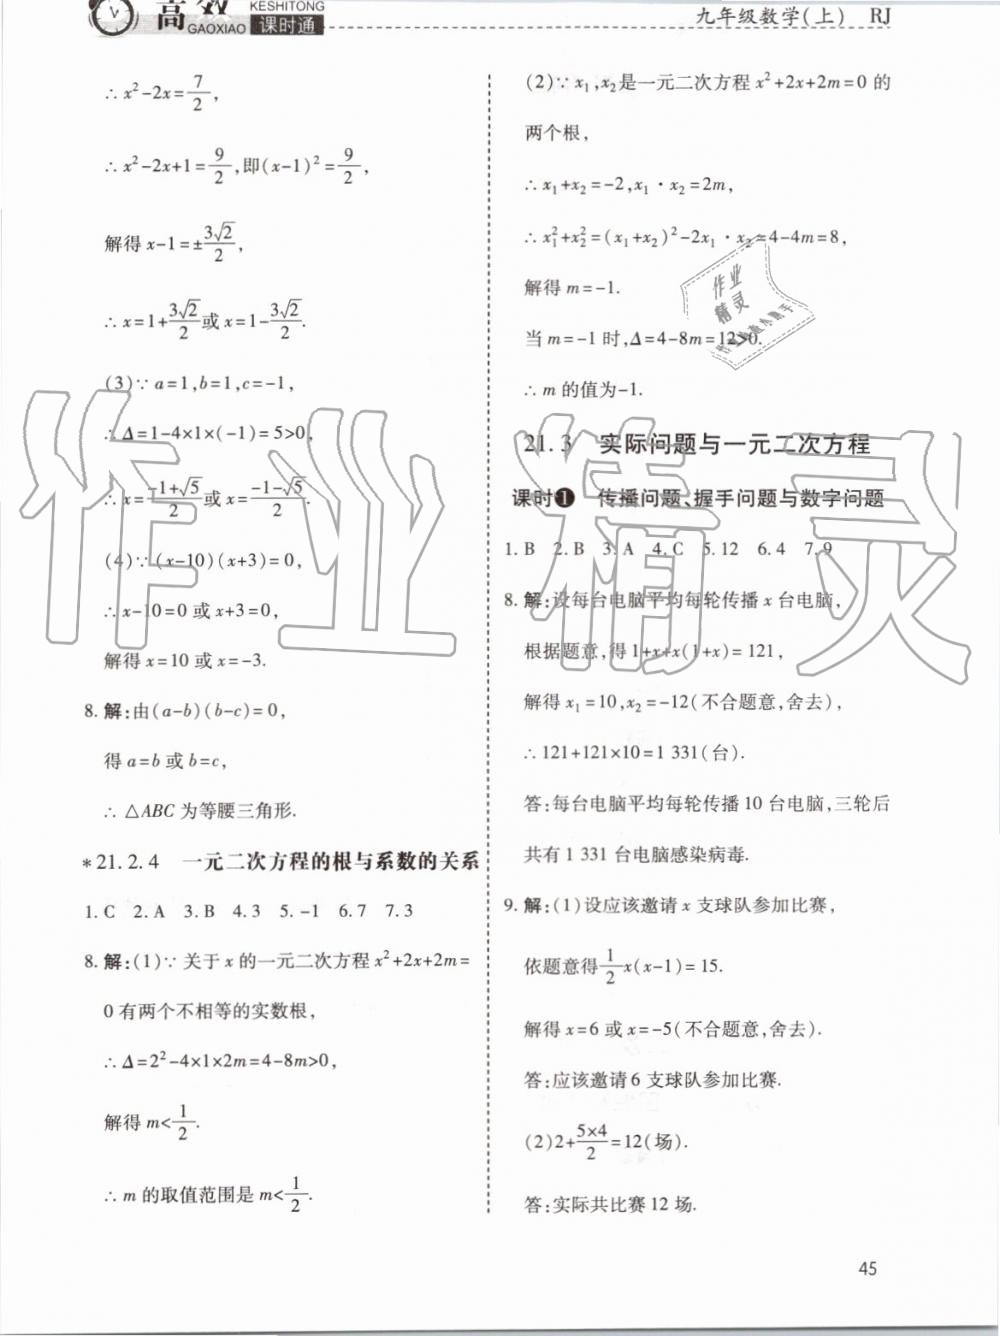 高效 KESHITONG
GAOXIAO 课时通
九年级数学(上) RJ
∴ x²-2x=7/2,
∴ x²-2x+1=9/2,即(x-1)²=9/2,
解得 x-1=±3√2/2,
∴ x=1+3√2/2或 x=1-3√2/2.
(3)∵ a=1,b=1,c=-1,
∴ Δ=1-4×1×(-1)=5>0,
∴ x=-1+√5/2 或 x=-1-√5/2.
(4)∵ (x-10)(x+3)=0,
∴ x-10=0 或 x+3=0,
解得 x=10 或 x=-3.
8. 解:由(a-b)(b-c)=0,
得 a=b 或 b=c,
∴ △ABC 为等腰三角形.
*21.2.4 一元二次方程的根与系数的关系
1. C 2. A 3. B 4. 3 5. -1 6. 7 7. 3
8. 解:(1)∵ 关于 x 的一元二次方程 x²+2x+2m=
0 有两个不相等的实数根,
∴ Δ=2²-4×1×2m=4-8m>0,
解得 m<1/2.
∴ m 的取值范围是 m<1/2.
(2)∵ x₁,x₂是一元二次方程 x²+2x+2m=0 的
两个根,
∴ x₁+x₂=-2,x₁·x₂=2m,
∴ x₁²+x₂²=(x₁+x₂)²-2x₁·x₂=4-4m=8,
解得 m=-1.
当 m=-1 时,Δ=4-8m=12>0.
∴ m 的值为-1.
21.3 实际问题与一元二次方程
课时❶ 传播问题、握手问题与数字问题
1. B 2. B 3. A 4. C 5. 12 6. 4 7. 9
8. 解:设每台电脑平均每轮传播 x 台电脑,
根据题意,得 1+x+x(1+x)=121,
解得 x₁=10,x₂=-12(不合题意,舍去),
∴ 121+121×10=1 331(台).
答:每台电脑平均每轮传播 10 台电脑,三轮后
共有 1 331 台电脑感染病毒.
9. 解:(1)设应该邀请 x 支球队参加比赛,
依题意得1/2x(x-1)=15.
解得 x=6 或 x=-5(不合题意,舍去).
答:应该邀请 6 支球队参加比赛.
(2)2+5×4/2=12(场).
答:实际共比赛 12 场.
45
作业精灵
作业
精灵